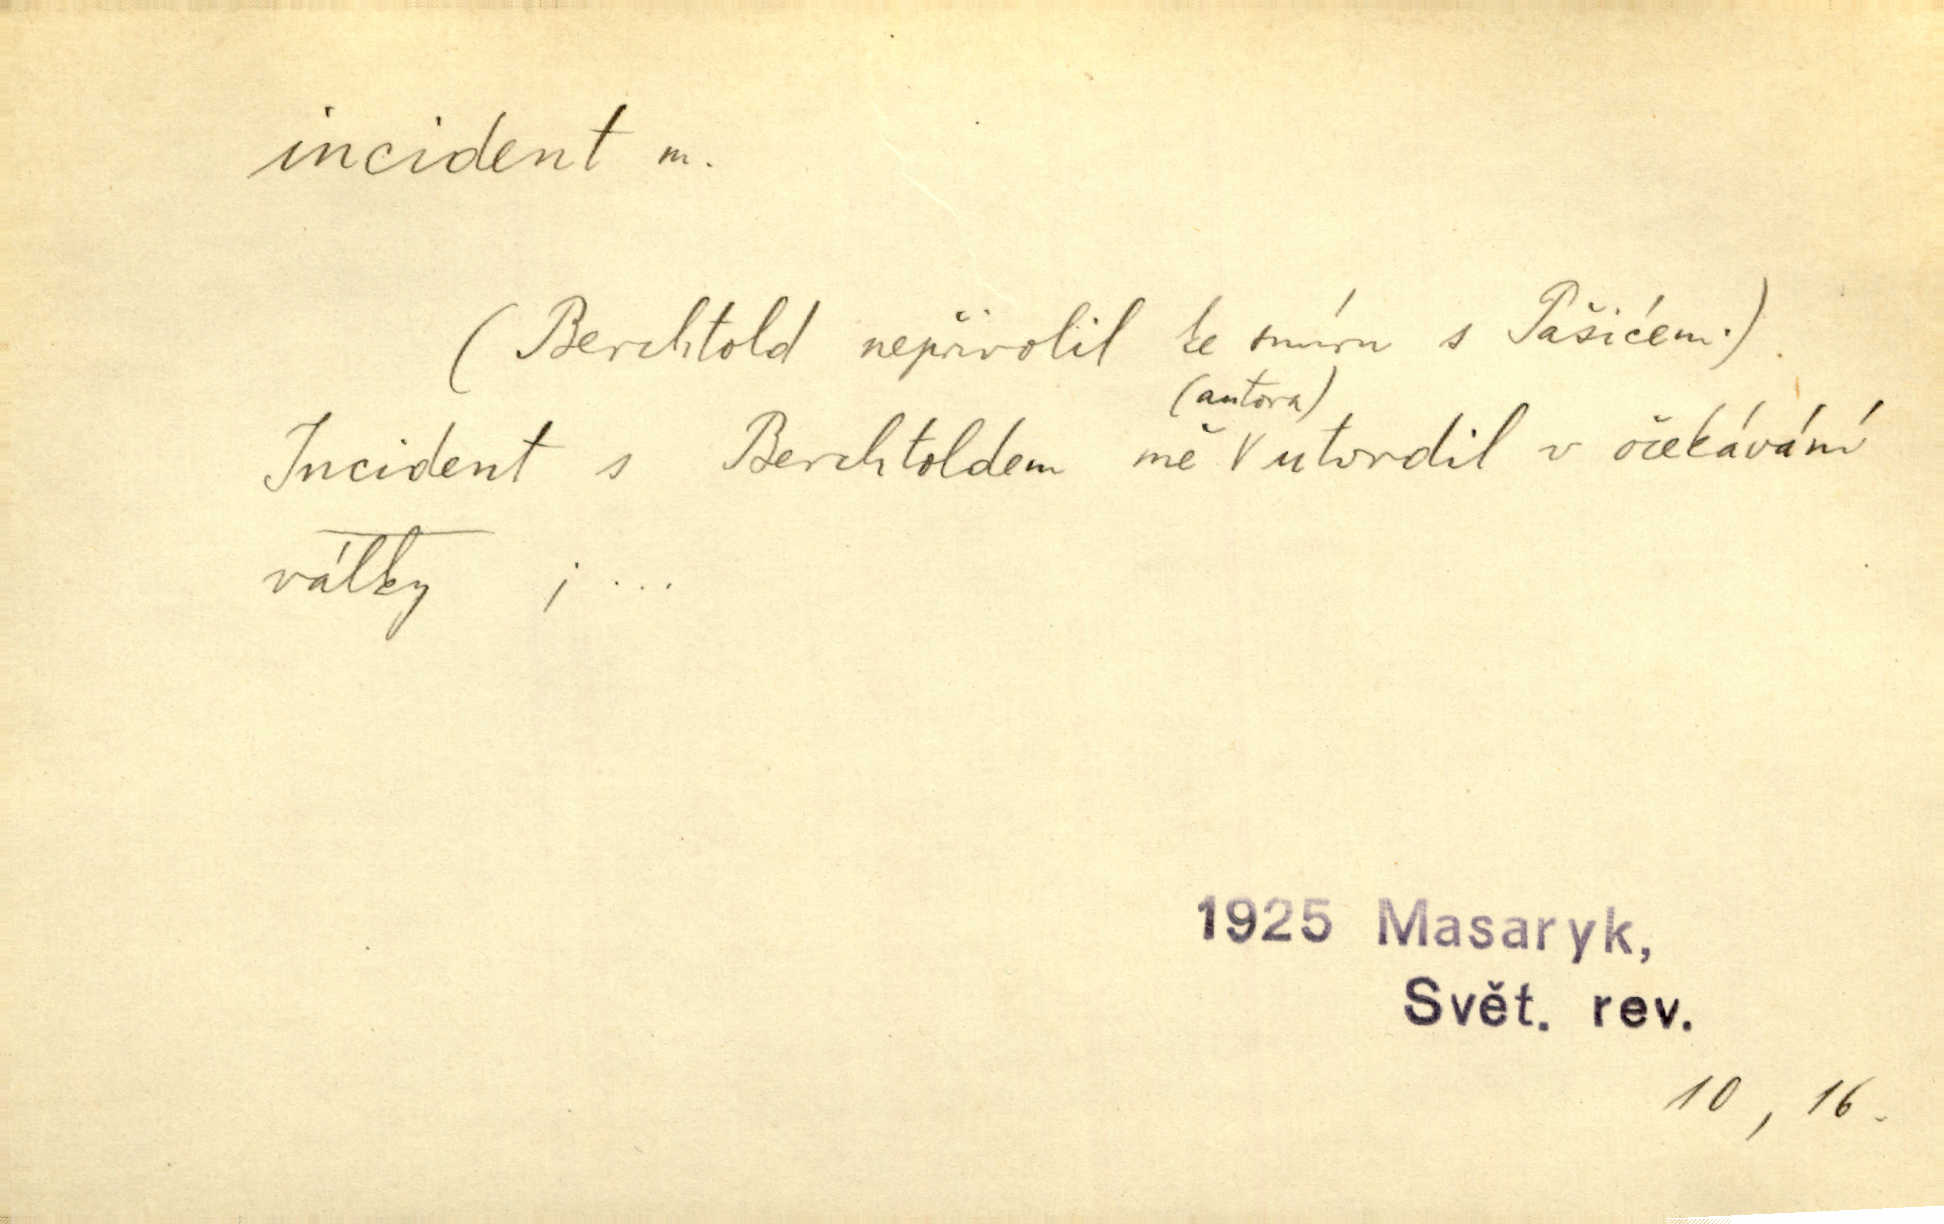 incident m.
(Berchtold nepřivolil ke smíru s Pašićem.)
(autora)
Incident s Berchtoldem mě V utvrdil v očekávání
války ; ...
1925 Masaryk,
Svět. rev.
10, 16.